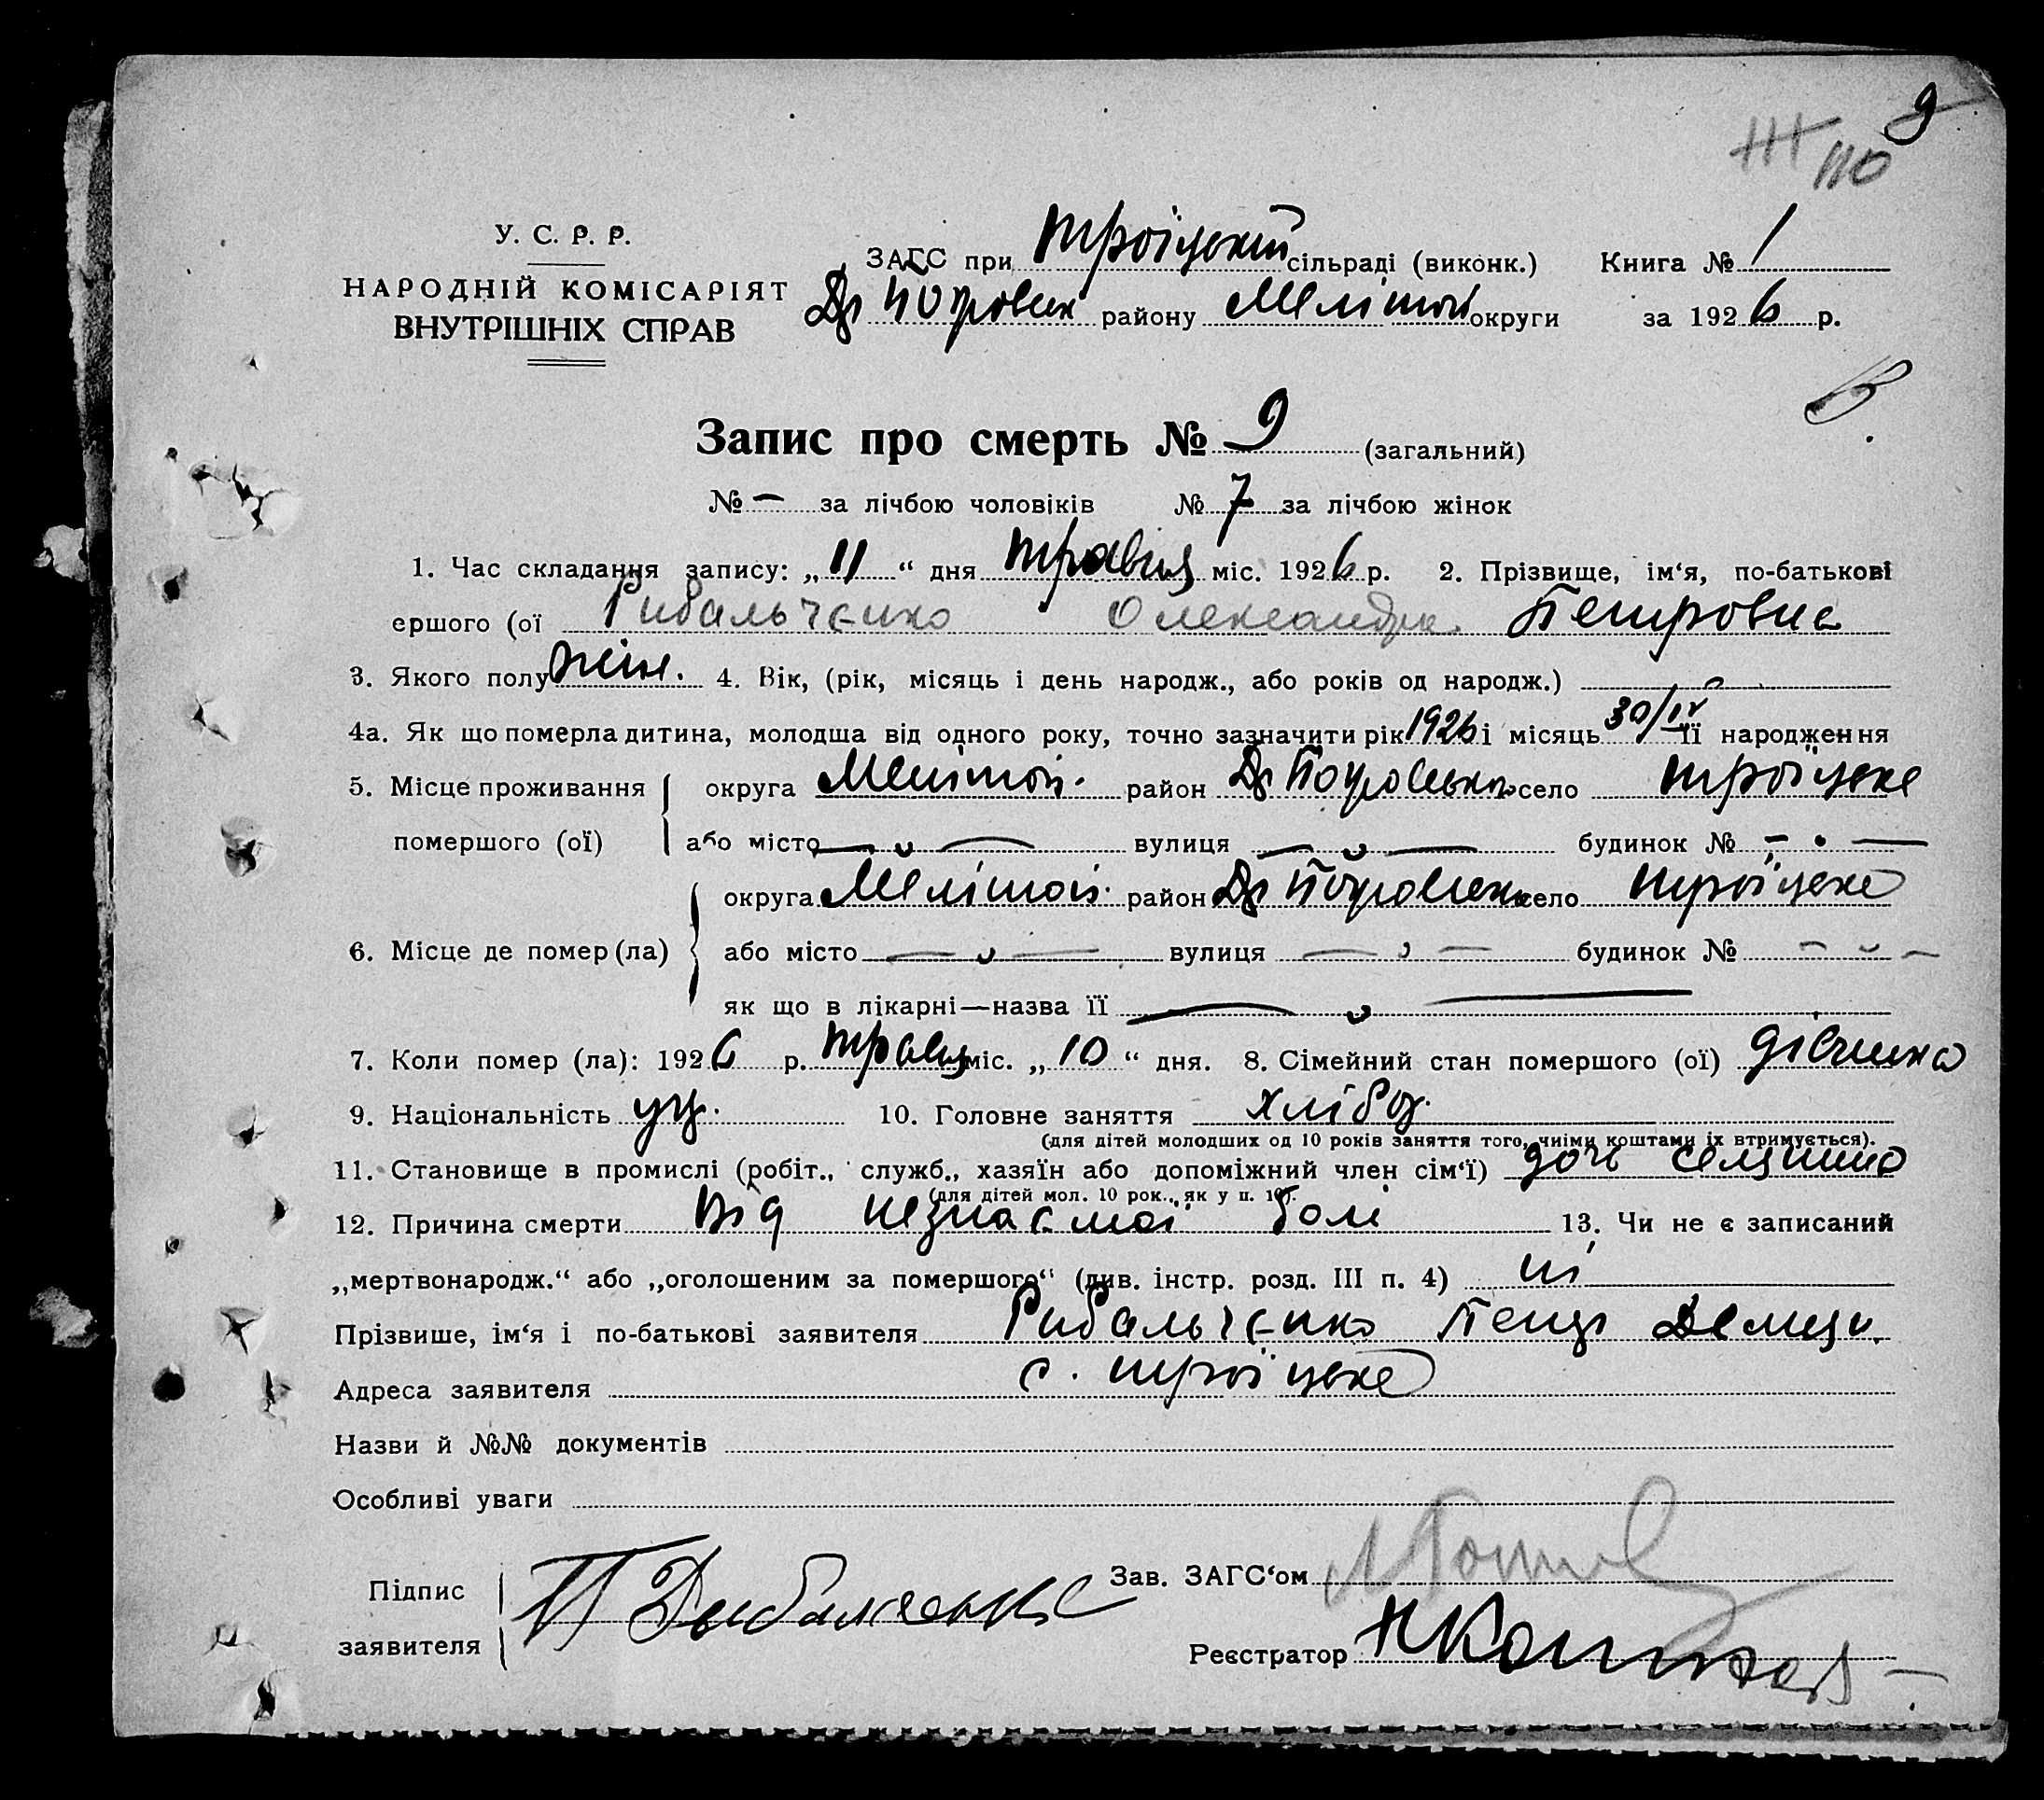 9
110
У. С. Р. Р.
НАРОДНІЙ КОМІСАРІЯТ
ВНУТРІШНІХ СПРАВ
ЗАГС при Троїцькій сільраді (виконк.) Книга № 1
району Мелітоп округи за 1926 р.
Запис про смерть № 9 (загальний)
№ — за лічбою чоловіків № 7 за лічбою жінок
1. Час складання запису: „11“ дня травня міс. 1926 р. 2. Прізвище, ім‘я, по-батькові
ершого (ої Рибальченко Олександра Петровна
3. Якого полу жін. 4. Вік, (рік, місяць і день народж., або років од народж.)
4а. Як що померла дитина, молодша від одного року, точно зазначити рік 1926 і місяць 30/IV її народження
5. Місце проживання округа Мелітоп. район село Троїцьке
помершого (ої) або місто — „ — вулиця — „ — будинок № — „ —
округа Мелітоп. район село Троїцьке
6. Місце де помер (ла) або місто — „ — вулиця — „ — будинок № — „ —
як що в лікарні—назва її — „ —
7. Коли помер (ла): 1926 р. травня міс. „10“ дня. 8. Сімейний стан помершого (ої) дівчина
9. Національність укр. 10. Головне заняття хлібор.
(для дітей молодших од 10 років заняття того, чиїми коштами їх втримується).
11. Становище в промислі (робіт., служб., хазяїн або допоміжний член сім‘ї) дочь селянина
(для дітей мол. 10 рок., як у п. 10).
12. Причина смерти Від незнаємої болі 13. Чи не є записаний
„мертвонародж.“ або „оголошеним за помершого“ (див. інстр. розд. III п. 4) ні
Прізвише, ім‘я і по-батькові заявителя Рибальченко Петр
Адреса заявителя с. Троїцьке
Назви й №№ документів
Особливі уваги
Підпис
заявителя
Зав. ЗАГС‘ом
Реєстратор